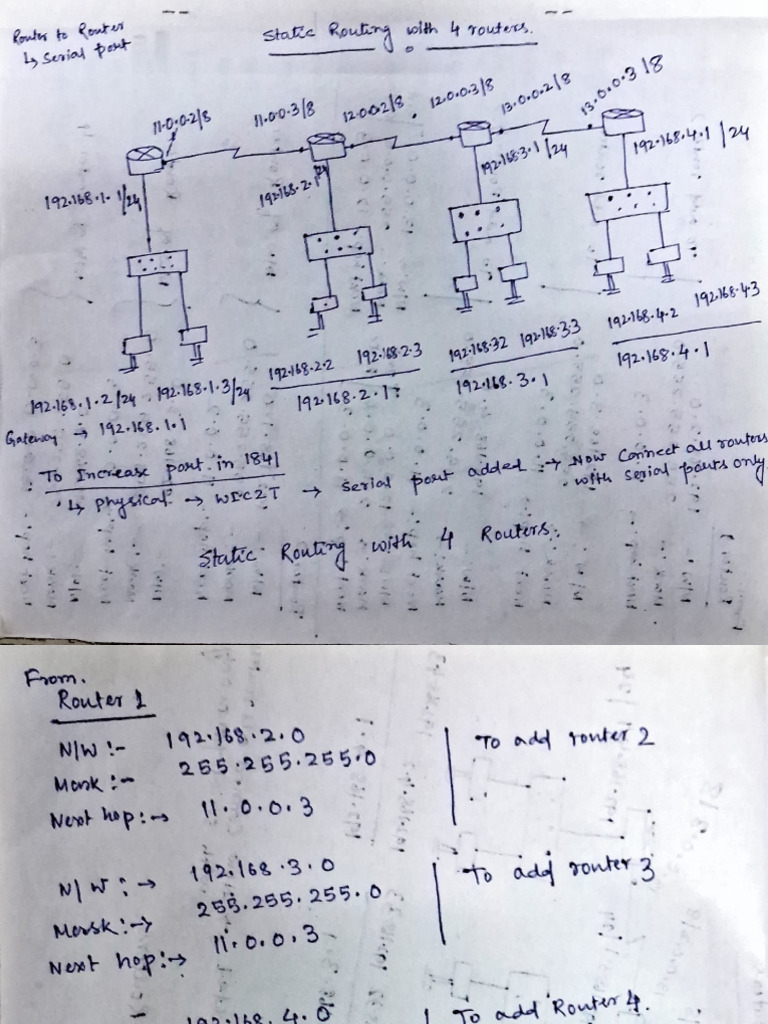 Router to Router
↳ Serial port
Static Routing with 4 routers.
11.0.0.2/8
11.0.0.3/8
12.0.0.2/8
12.0.0.3/8
13.0.0.2/8
13.0.0.3/8
192.168.1.1/24
192.168.2.1/24
192.168.3.1/24
192.168.4.1/24
192.168.1.2/24, 192.168.1.3/24
Gateway → 192.168.1.1
192.168.2.2 192.168.2.3
192.168.2.1
192.168.32 192.168.3.3
192.168.3.1
192.168.4.2 192.168.4.3
192.168.4.1
To Increase port in 1841
↳ Physical → WIC2T → Serial port added → Now Connect all routers
with serial ports only
Static Routing with 4 Routers.
From.
Router 1
N/W :- 192.168.2.0
Mask :- 255.255.255.0
Next hop :→ 11.0.0.3
To add router 2
N/W :→ 192.168.3.0
Mask :→ 255.255.255.0
Next hop :→ 11.0.0.3
To add router 3
192.168.4.0
To add Router 4.